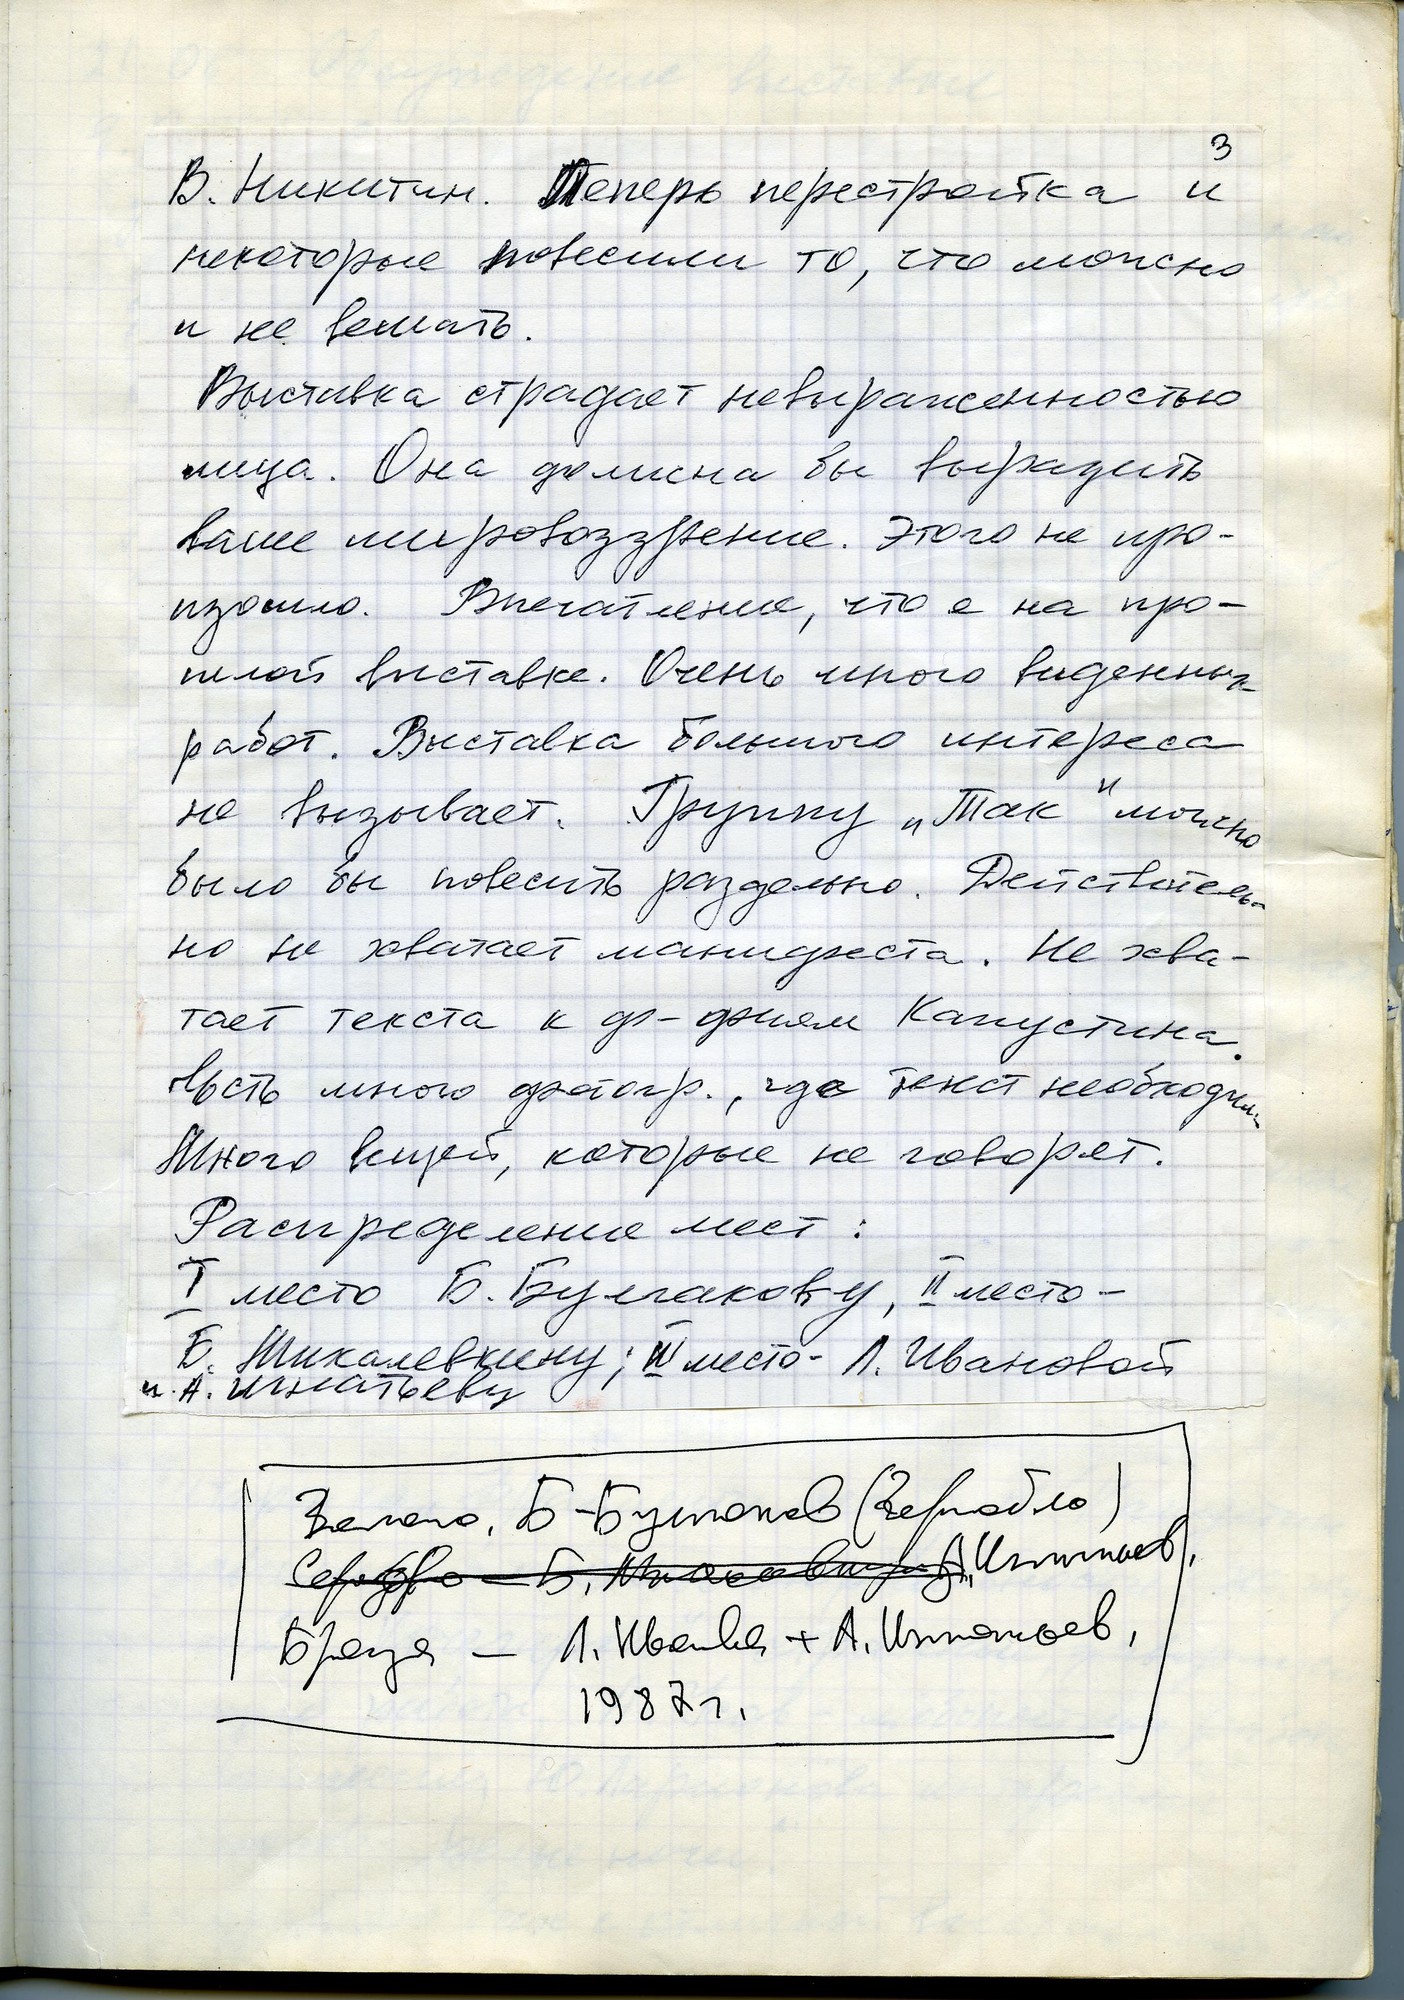 3
В. Никитин. Теперь перестройка и
некоторые повесили то, что можно
и не вешать.
Выставка страдает невыраженностью
лица. Она должна бы выразить
ваше мировоззрение. Этого не про-
изошло. Впечатление, что я на про-
шлой выставке. Очень много виденных
работ. Выставка большого интереса
не вызывает. Группу „Так" можно
было бы повесить раздельно. Действитель-
но не хватает манифеста. Не хва-
тает текста к ф-фиям Капустина.
Есть много фотогр., где текст необходим.
Много вещей, которые не говорят.
Распределение мест:
I место Б. Булгакову, II место-
Б. Михалевкину; III место- Л. Ивановой
и А. Игнатьеву
Золото, Б-Булгаков (Чернобло)
Серебро - Б. Михалевкину А. Игнатьев,
Бронза - Л. Иванова + А. Игнатьев,
1987 г.